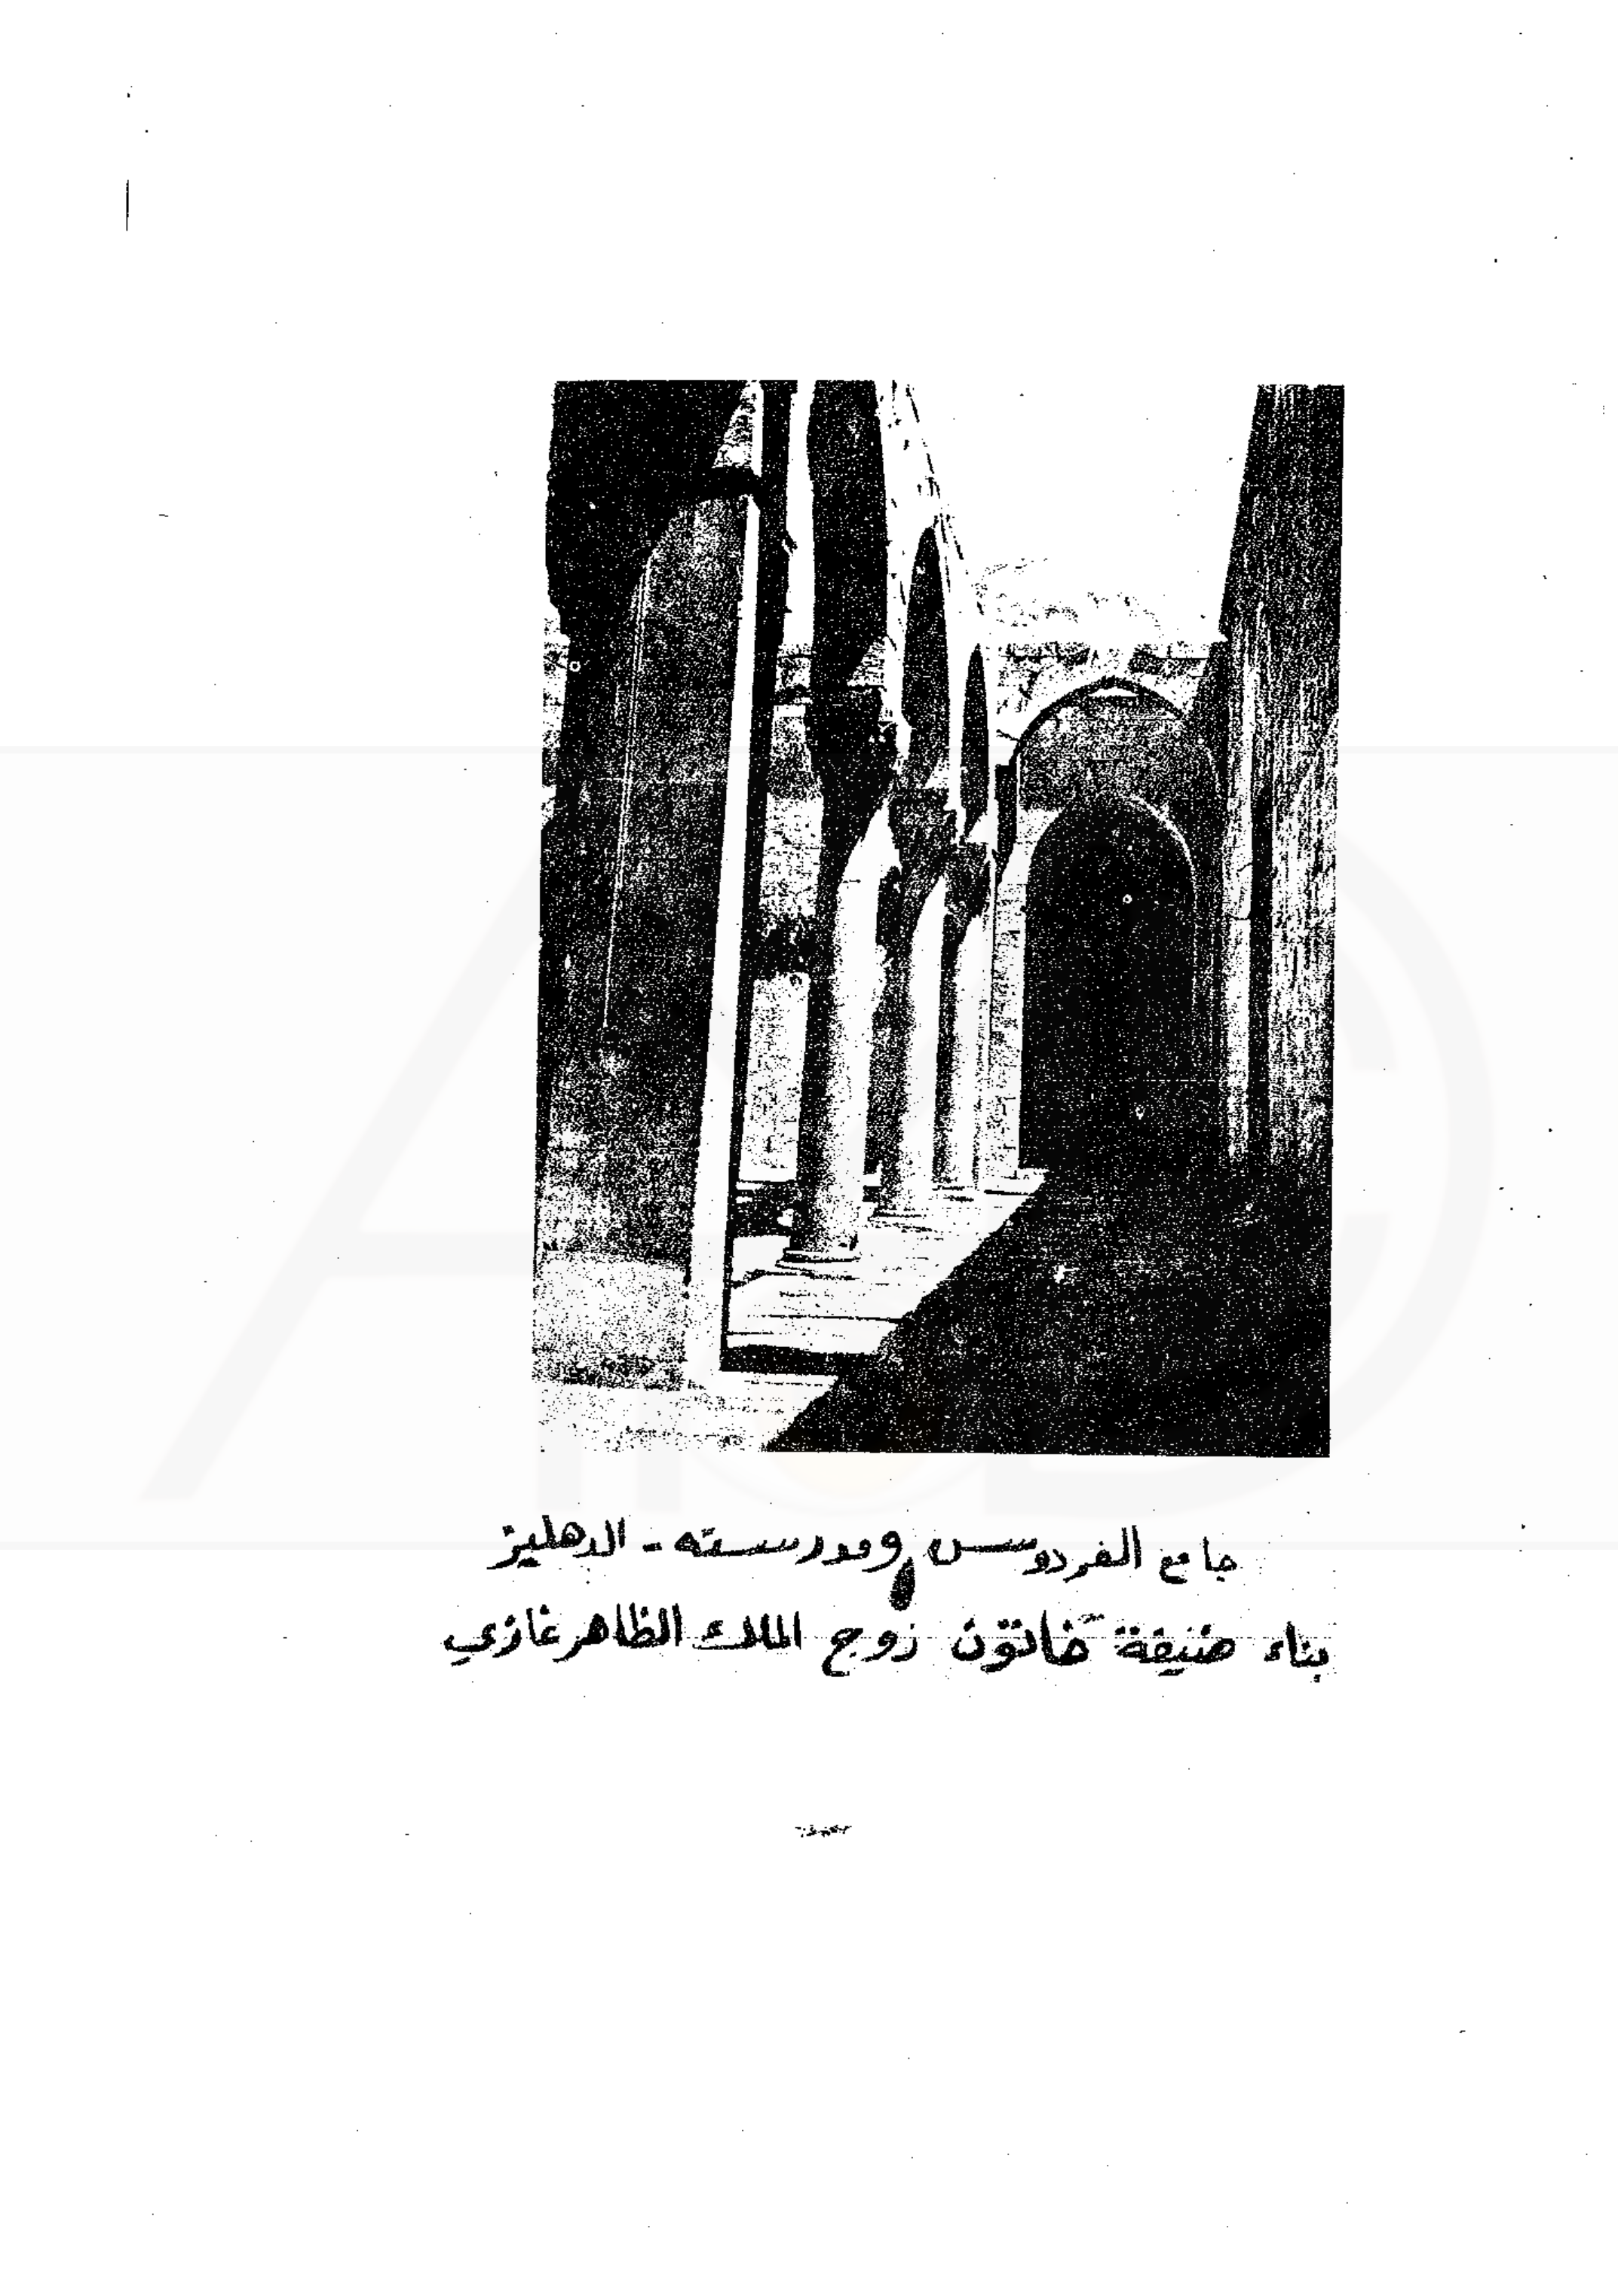 جامع الفردوس ومدرسته - الدهليز
بناء ضنيفة خاتون زوج الملك الظاهر غازي